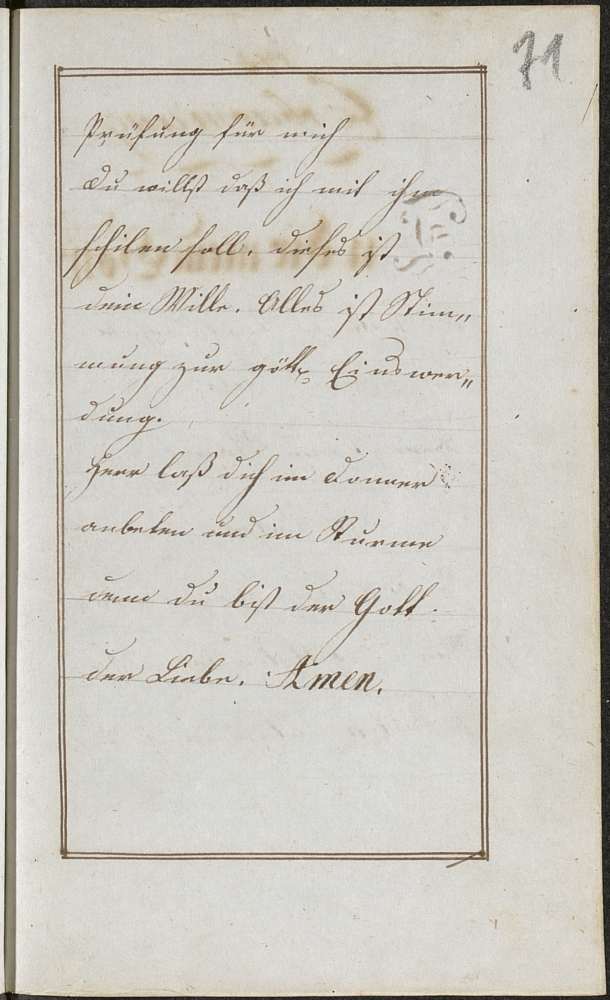 71
Prüfung für mich
Du willst daß ich mit ihm
theilen soll, dieses ist
dein Wille. Alles ist Stim„
mung zur göttl Einswer„
dung.
Herr laß dich im Donner
anbeten und im Sturme
denn du bist der Gott
der Liebe. Amen.